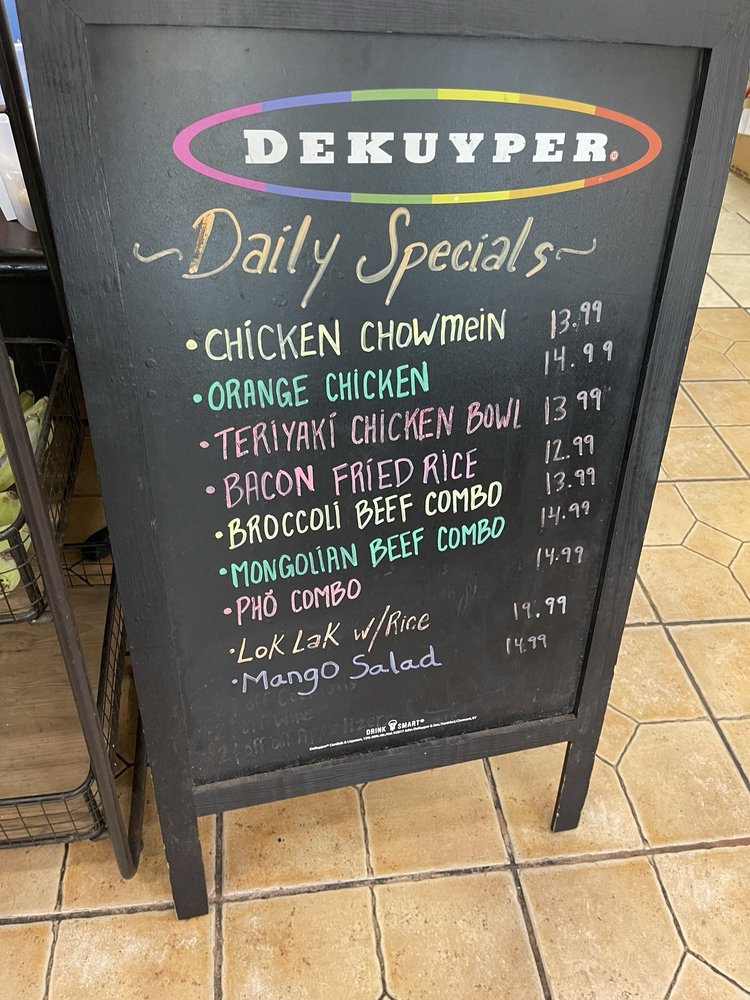 DEKUYPER®
~Daily Specials~
• CHICKEN CHOWMEIN 13.99
• ORANGE CHICKEN 14.99
• TERIYAKI CHICKEN BOWL 13 99
• BACON FRIED RICE 12.99
• BROCCOLI BEEF COMBO 13.99
• MONGOLIAN BEEF COMBO 14.99
• PHỞ COMBO 14.99
• LOK LAK w/Rice 19.99
• Mango Salad 14.99
DRINK SMART®